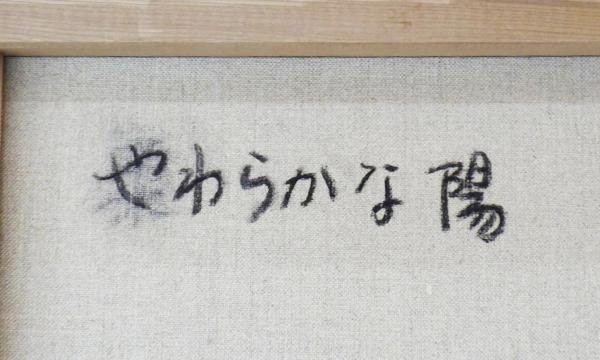 やわらかな陽